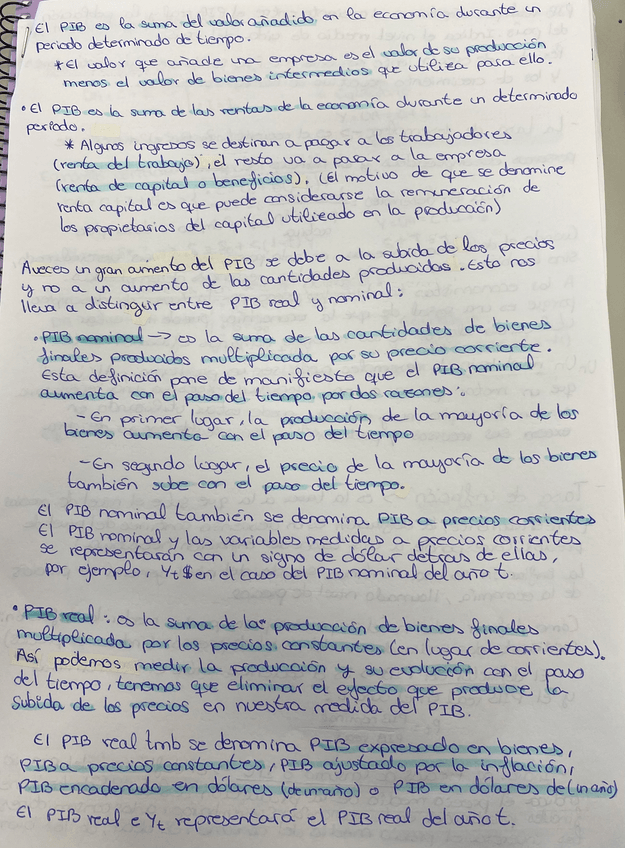 El PIB es la suma del valor añadido en la economía durante un
periodo determinado de tiempo.
* El valor que añade una empresa es el valor de su producción
menos el valor de bienes intermedios que utiliza para ello.
• El PIB es la suma de las rentas de la economía durante un determinado
período.
* Algunos ingresos se destinan a pagar a los trabajadores
(renta del trabajo), el resto va a parar a la empresa
(renta de capital o beneficios). (El motivo de que se denomine
renta capital es que puede considerarse la remuneración de
los propietarios del capital utilizado en la producción)
Aveces un gran aumento del PIB se debe a la subida de los precios
y no a un aumento de las cantidades producidas. Esto nos
lleva a distinguir entre PIB real y nominal:
• PIB nominal → es la suma de las cantidades de bienes
finales producidos multiplicada por su precio corriente.
Esta definición pone de manifiesto que el PIB nominal
aumenta con el paso del tiempo por dos razones:
- En primer lugar, la producción de la mayoría de los
bienes aumenta con el paso del tiempo
- En segundo lugar, el precio de la mayoría de los bienes
también sube con el paso del tiempo.
El PIB nominal también se denomina PIB a precios corrientes
El PIB nominal y las variables medidas a precios corrientes
se representarán con un signo de dólar detrás de ellas,
por ejemplo, Yt $ en el caso del PIB nominal del año t.
• PIB real: es la suma de las producción de bienes finales
multiplicada por los precios constantes (en lugar de corrientes).
Así podemos medir la producción y su evolución con el paso
del tiempo, tenemos que eliminar el efecto que produce la
subida de los precios en nuestra medida del PIB.
El PIB real tmb se denomina PIB expresado en bienes,
PIB a precios constantes, PIB ajustado por la inflación,
PIB encadenado en dólares (de un año) o PIB en dólares de (un año)
El PIB real e Yt representará el PIB real del año t.